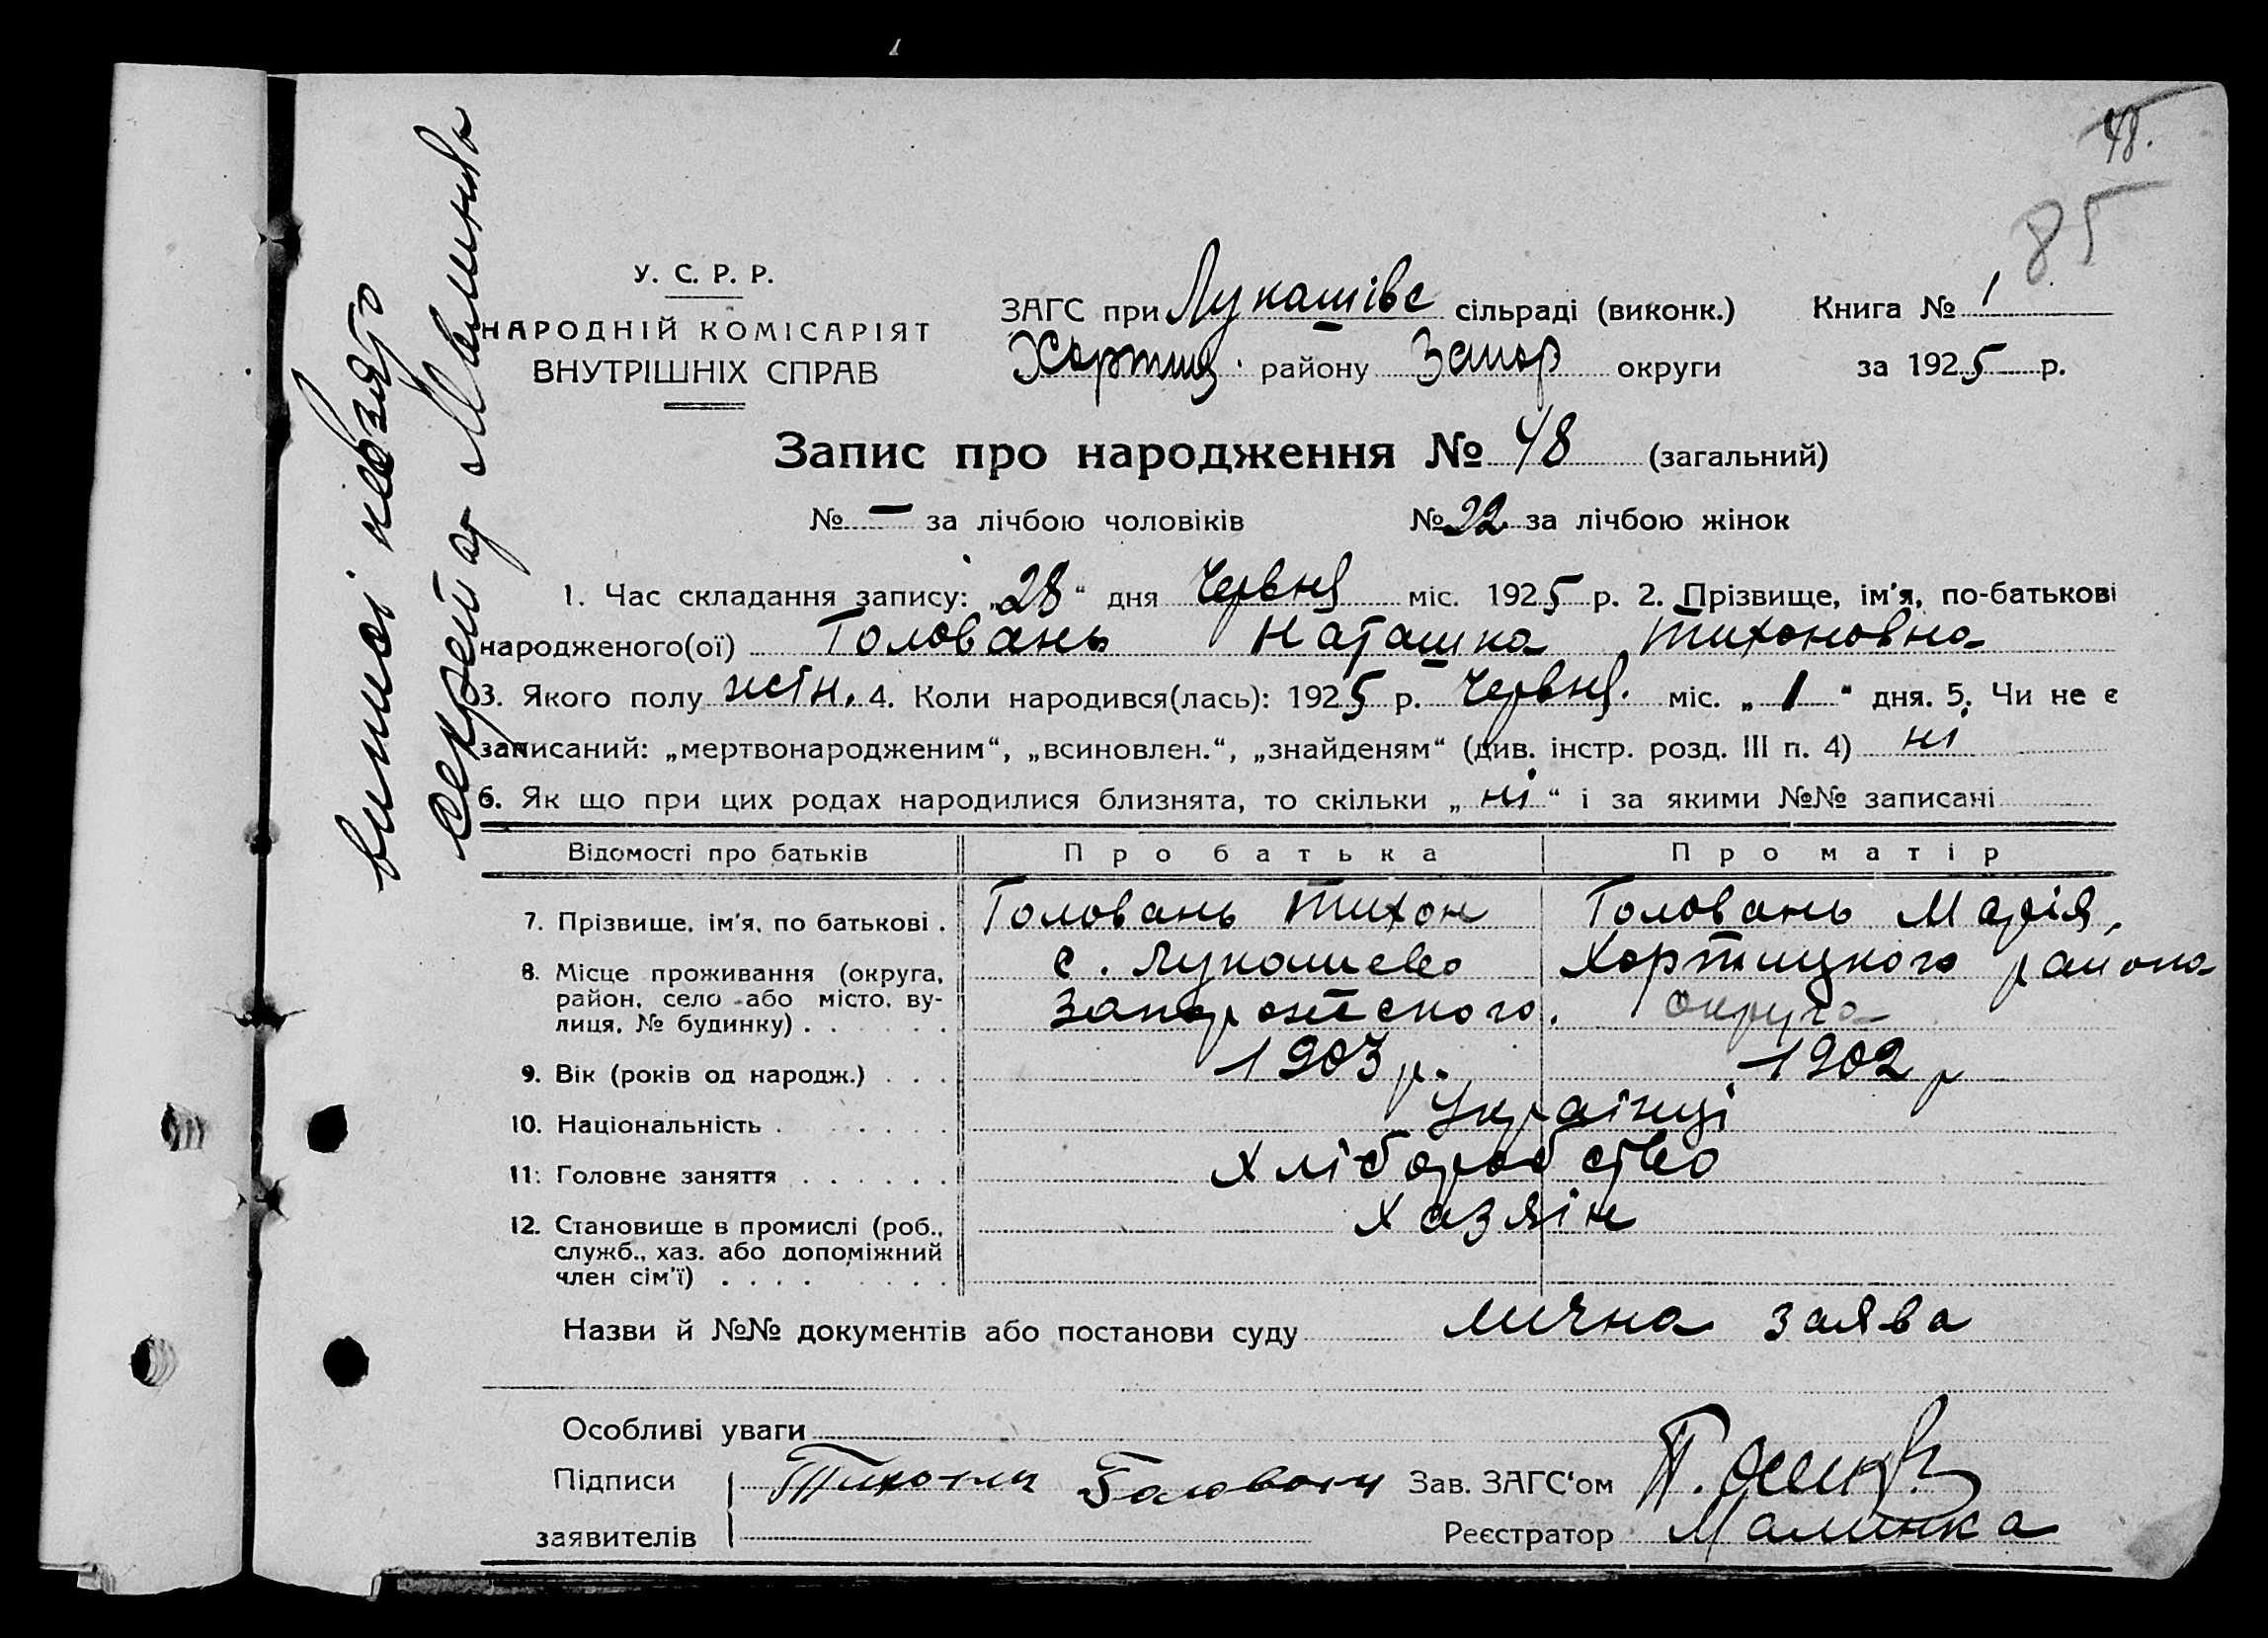 48.
85
У. С. Р. Р.
НАРОДНІЙ КОМІСАРІЯТ
ВНУТРІШНІХ СПРАВ
ЗАГС при Лукашівс сільраді (виконк.) Книга № 1
Хортиц. району Запор округи за 1925 р.
Запис про народження № 48 (загальний)
№ — за лічбою чоловіків № 22 за лічбою жінок
1. Час складання запису: „28“ дня Червня міс. 1925 р. 2. Прізвище, ім'я, по-батькові
народженого(ої) Головань Наташка Тихоновна
3. Якого полу жін. 4. Коли народився(лась): 1925 р. Червня. міс. „1“ дня. 5. Чи не є
записаний: „мертвонародженим“, „всиновлен.“, „знайденям“ (див. інстр. розд. III п. 4) ні
6. Як що при цих родах народилися близнята, то скільки „ні“ і за якими №№ записані
Відомості про батьків Про батька Про матір
7. Прізвище, ім'я, по батькові . Головань Тихон Головань Марія,
8. Місце проживання (округа, с. Лукашево Хортицкого района
район, село або місто, ву-
лиця, № будинку) . . . . . . Запорожского. Округа
9. Вік (років од народж.) . . . 1903 р. 1902 р
10. Національність . . . . . . . Українці
11. Головне заняття . . . . . . Хліборобство
12. Становище в промислі (роб., Хазяїн
служб., хаз. або допоміжний
член сім'ї) . . . . . . . .
Назви й №№ документів або постанови суду лична заява
Особливі уваги
Підписи Тихон Головань Зав. ЗАГС'ом П.
заявителів Реєстратор Малинка
виписі невзято
секретар Малинка